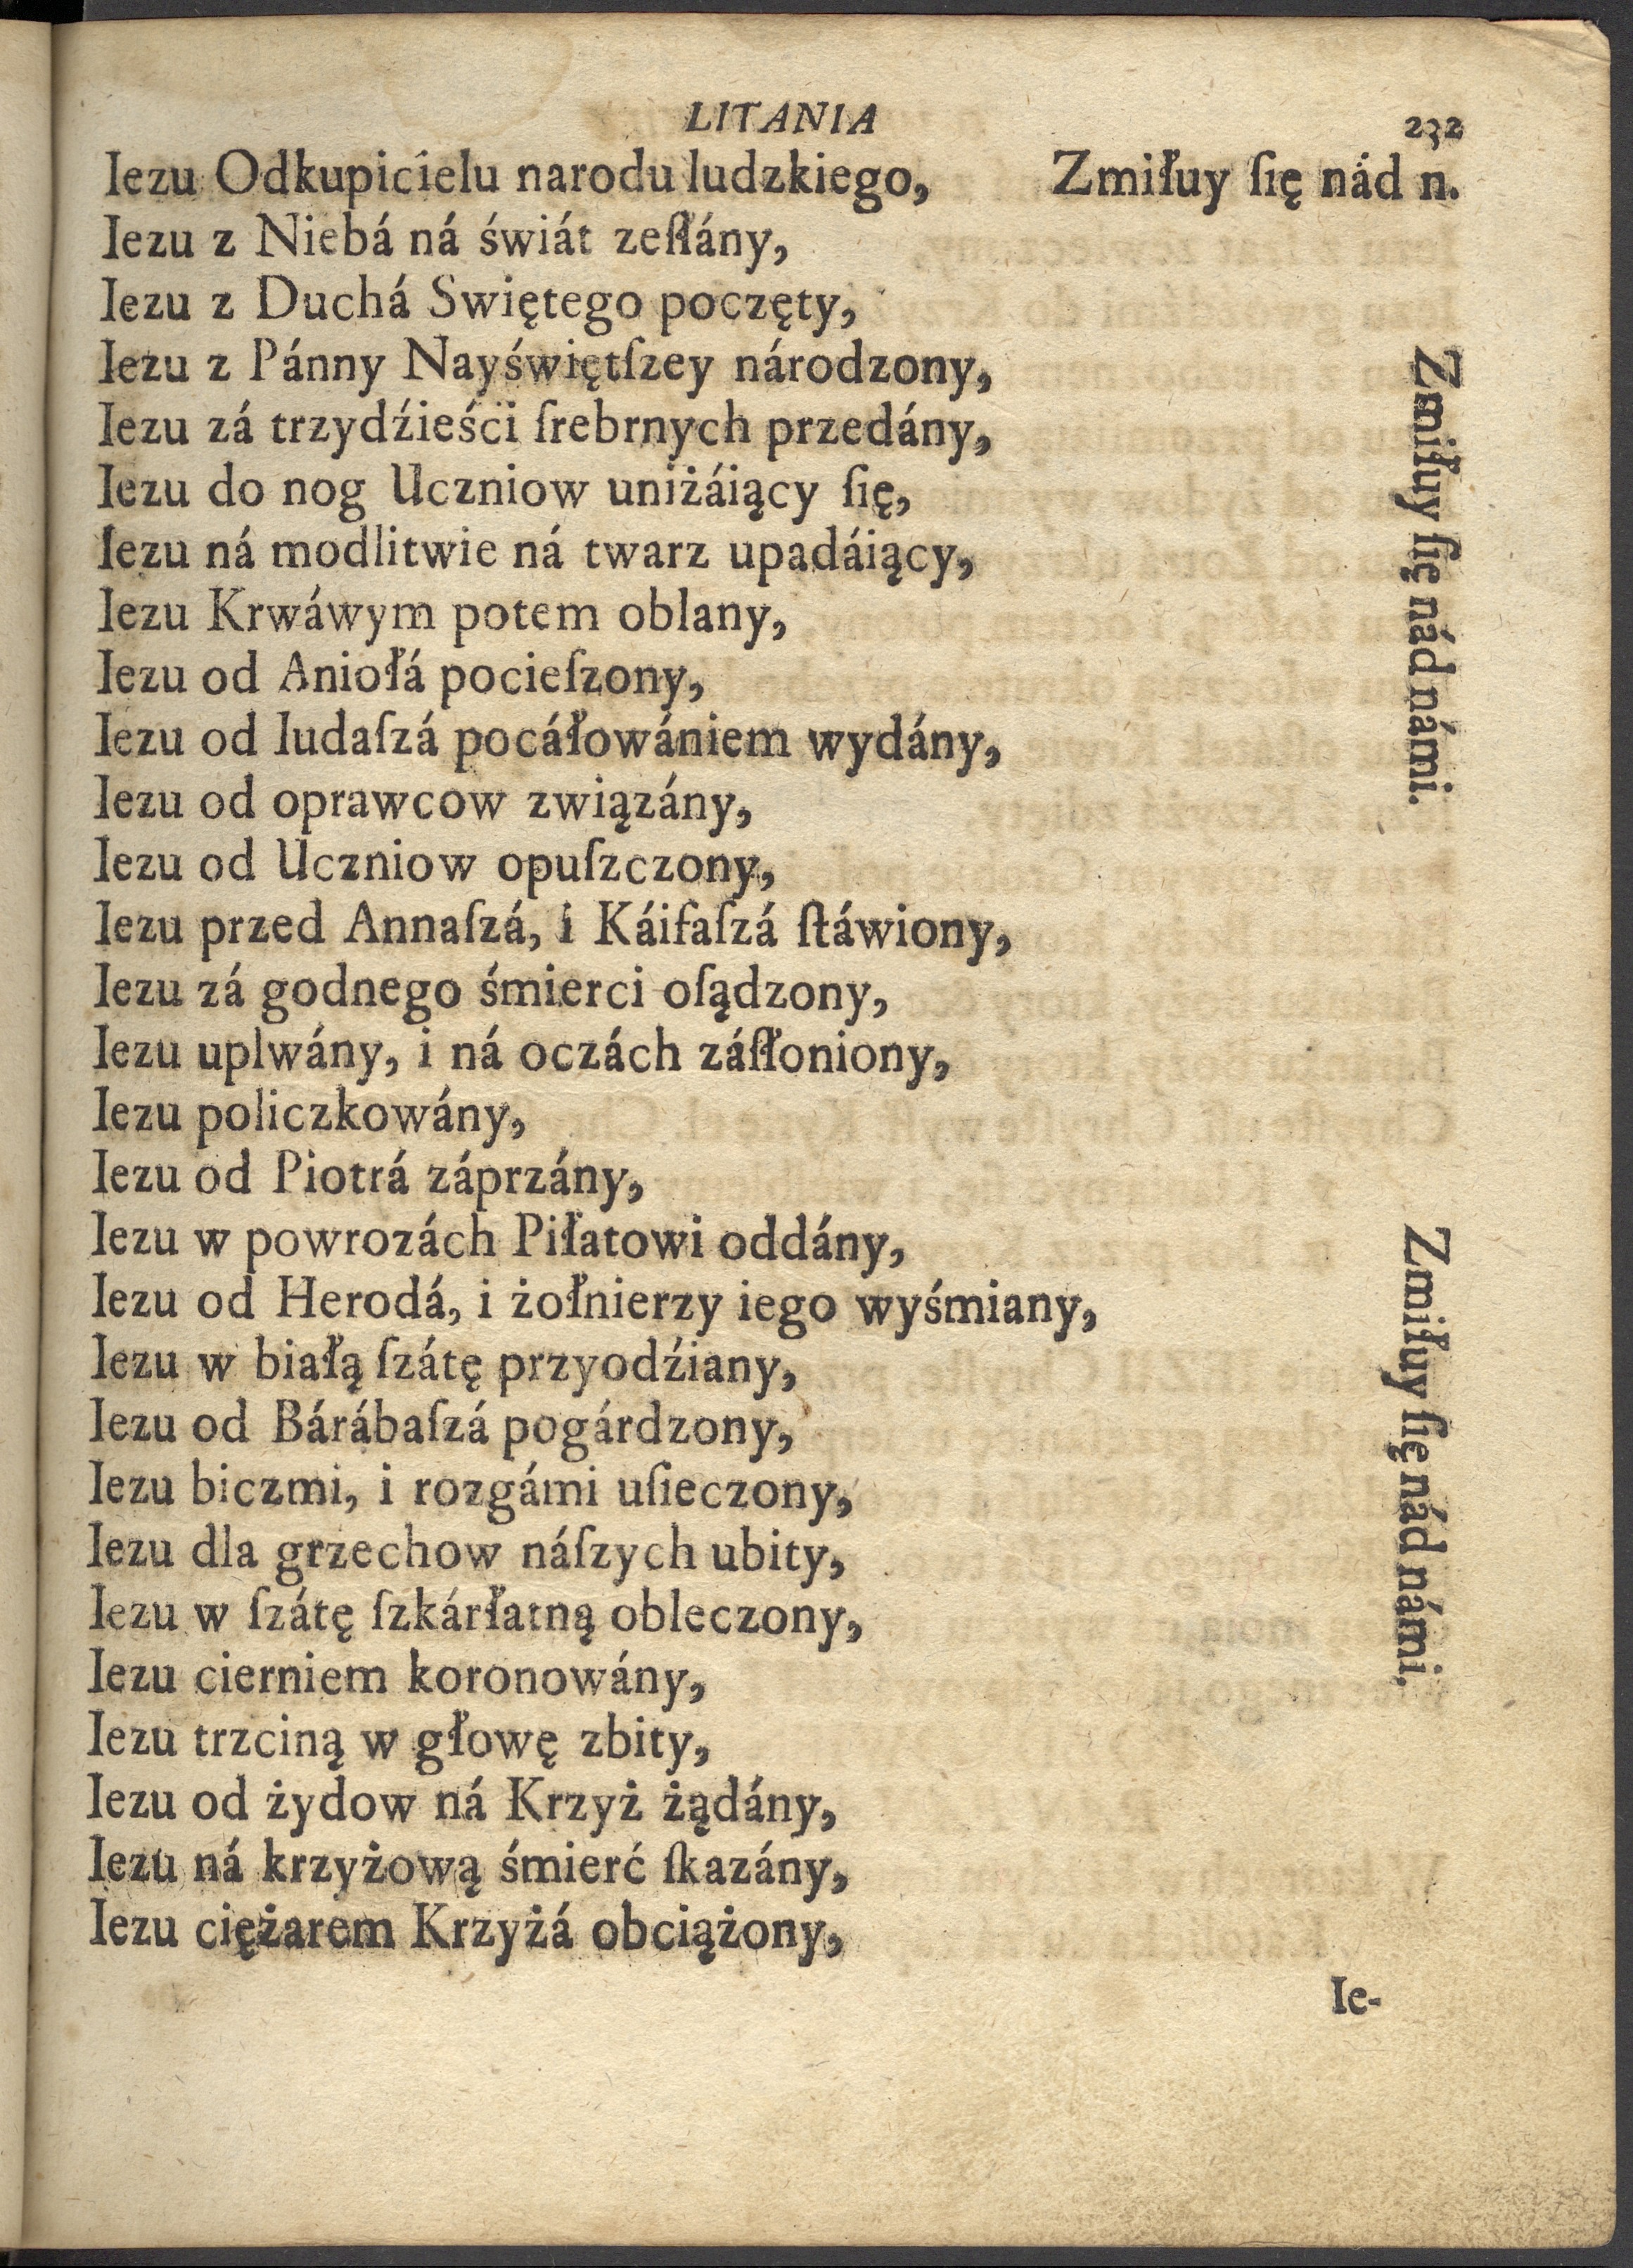 LITANIA 232
Iezu Odkupicielu narodu ludzkiego, Zmiłuy ſię nád n.
Iezu z Niebá ná świát zeſłány,
Iezu z Duchá Swiętego poczęty,
Iezu z Pánny Nayświętſzey národzony,
Iezu zá trzydźieści ſrebrnych przedány,
Iezu do nog Uczniow uniżáiący ſię,
Iezu ná modlitwie ná twarz upadáiący,
Iezu Krwáwym potem oblany,
Iezu od Aniołá pocieſzony,
Iezu od Iudaſzá pocáłowániem wydány,
Iezu od oprawcow związány,
Iezu od Uczniow opuſzczony,
Iezu przed Annaſzá, i Káifaſzá ſtáwiony,
Iezu zá godnego śmierci oſądzony,
Iezu uplwány, i ná oczách záſłoniony,
Iezu policzkowány,
Iezu od Piotrá záprzány,
Iezu w powrozách Piłatowi oddány,
Iezu od Herodá, i żołnierzy iego wyśmiany,
Iezu w białą ſzátę przyodźiany,
Iezu od Bárábaſzá pogárdzony,
Iezu biczmi, i rozgámi uſieczony,
Iezu dla grzechow náſzych ubity,
Iezu w ſzátę ſzkárłatną obleczony,
Iezu cierniem koronowány,
Iezu trzciną w głowę zbity,
Iezu od żydow ná Krzyż żądány,
Iezu ná krzyżową śmierć ſkazány,
Iezu ciężarem Krzyżá obciążony,
Zmiłuy ſię nád námi.
Zmiłuy ſię nád námi.
Ie-